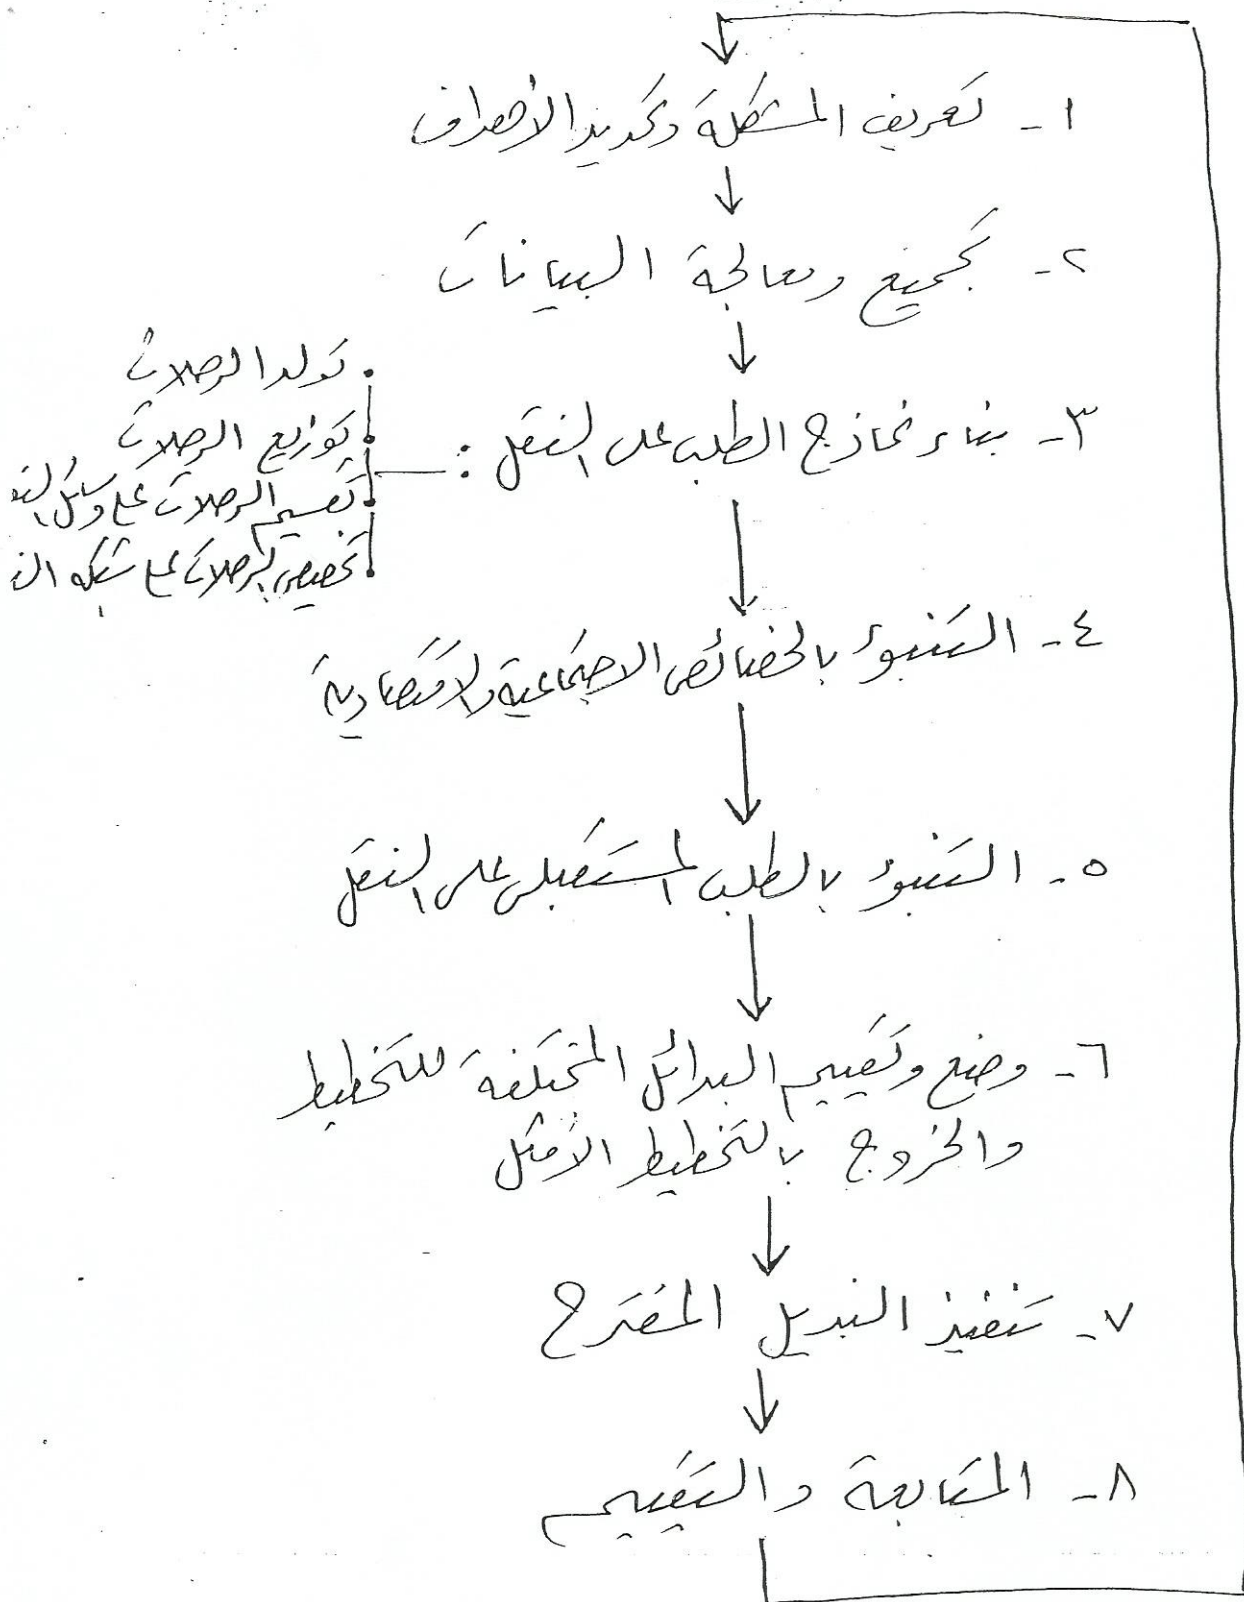 ١- تعريف المشكلة وتحديد الأهداف
٢- تجميع ومعالجة البيانات
٣- بناء نماذج الطلب على النقل :
. تولد الرحلات
. توزيع الرحلات
. تقسيم الرحلات على وسائل
. تخصيص الرحلات على شبكة
٤- التنبوء بالخصائص الاجتماعية والاقتصادية
٥- التنبوء بالطلب المستقبلى على النقل
٦- وضع وتقييم البدائل المختلفة للتخطيط
والخروج بالتخطيط الأمثل
٧- تنفيذ البديل المقترح
٨- المتابعة والتقييم